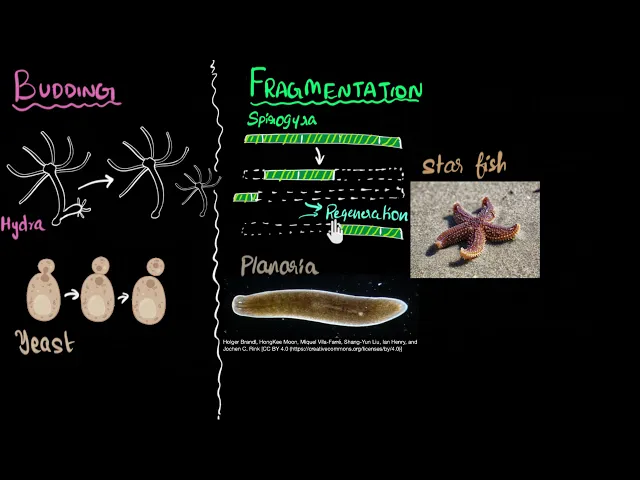 BUDDING
Hydra
Yeast
FRAGMENTATION
Spirogyra
Regeneration
Planaria
Holger Brandl, HongKee Moon, Miquel Vila-Farré, Shang-Yun Liu, Ian Henry, and
Jochen C. Rink [CC BY 4.0 (https://creativecommons.org/licenses/by/4.0)]
Star fish